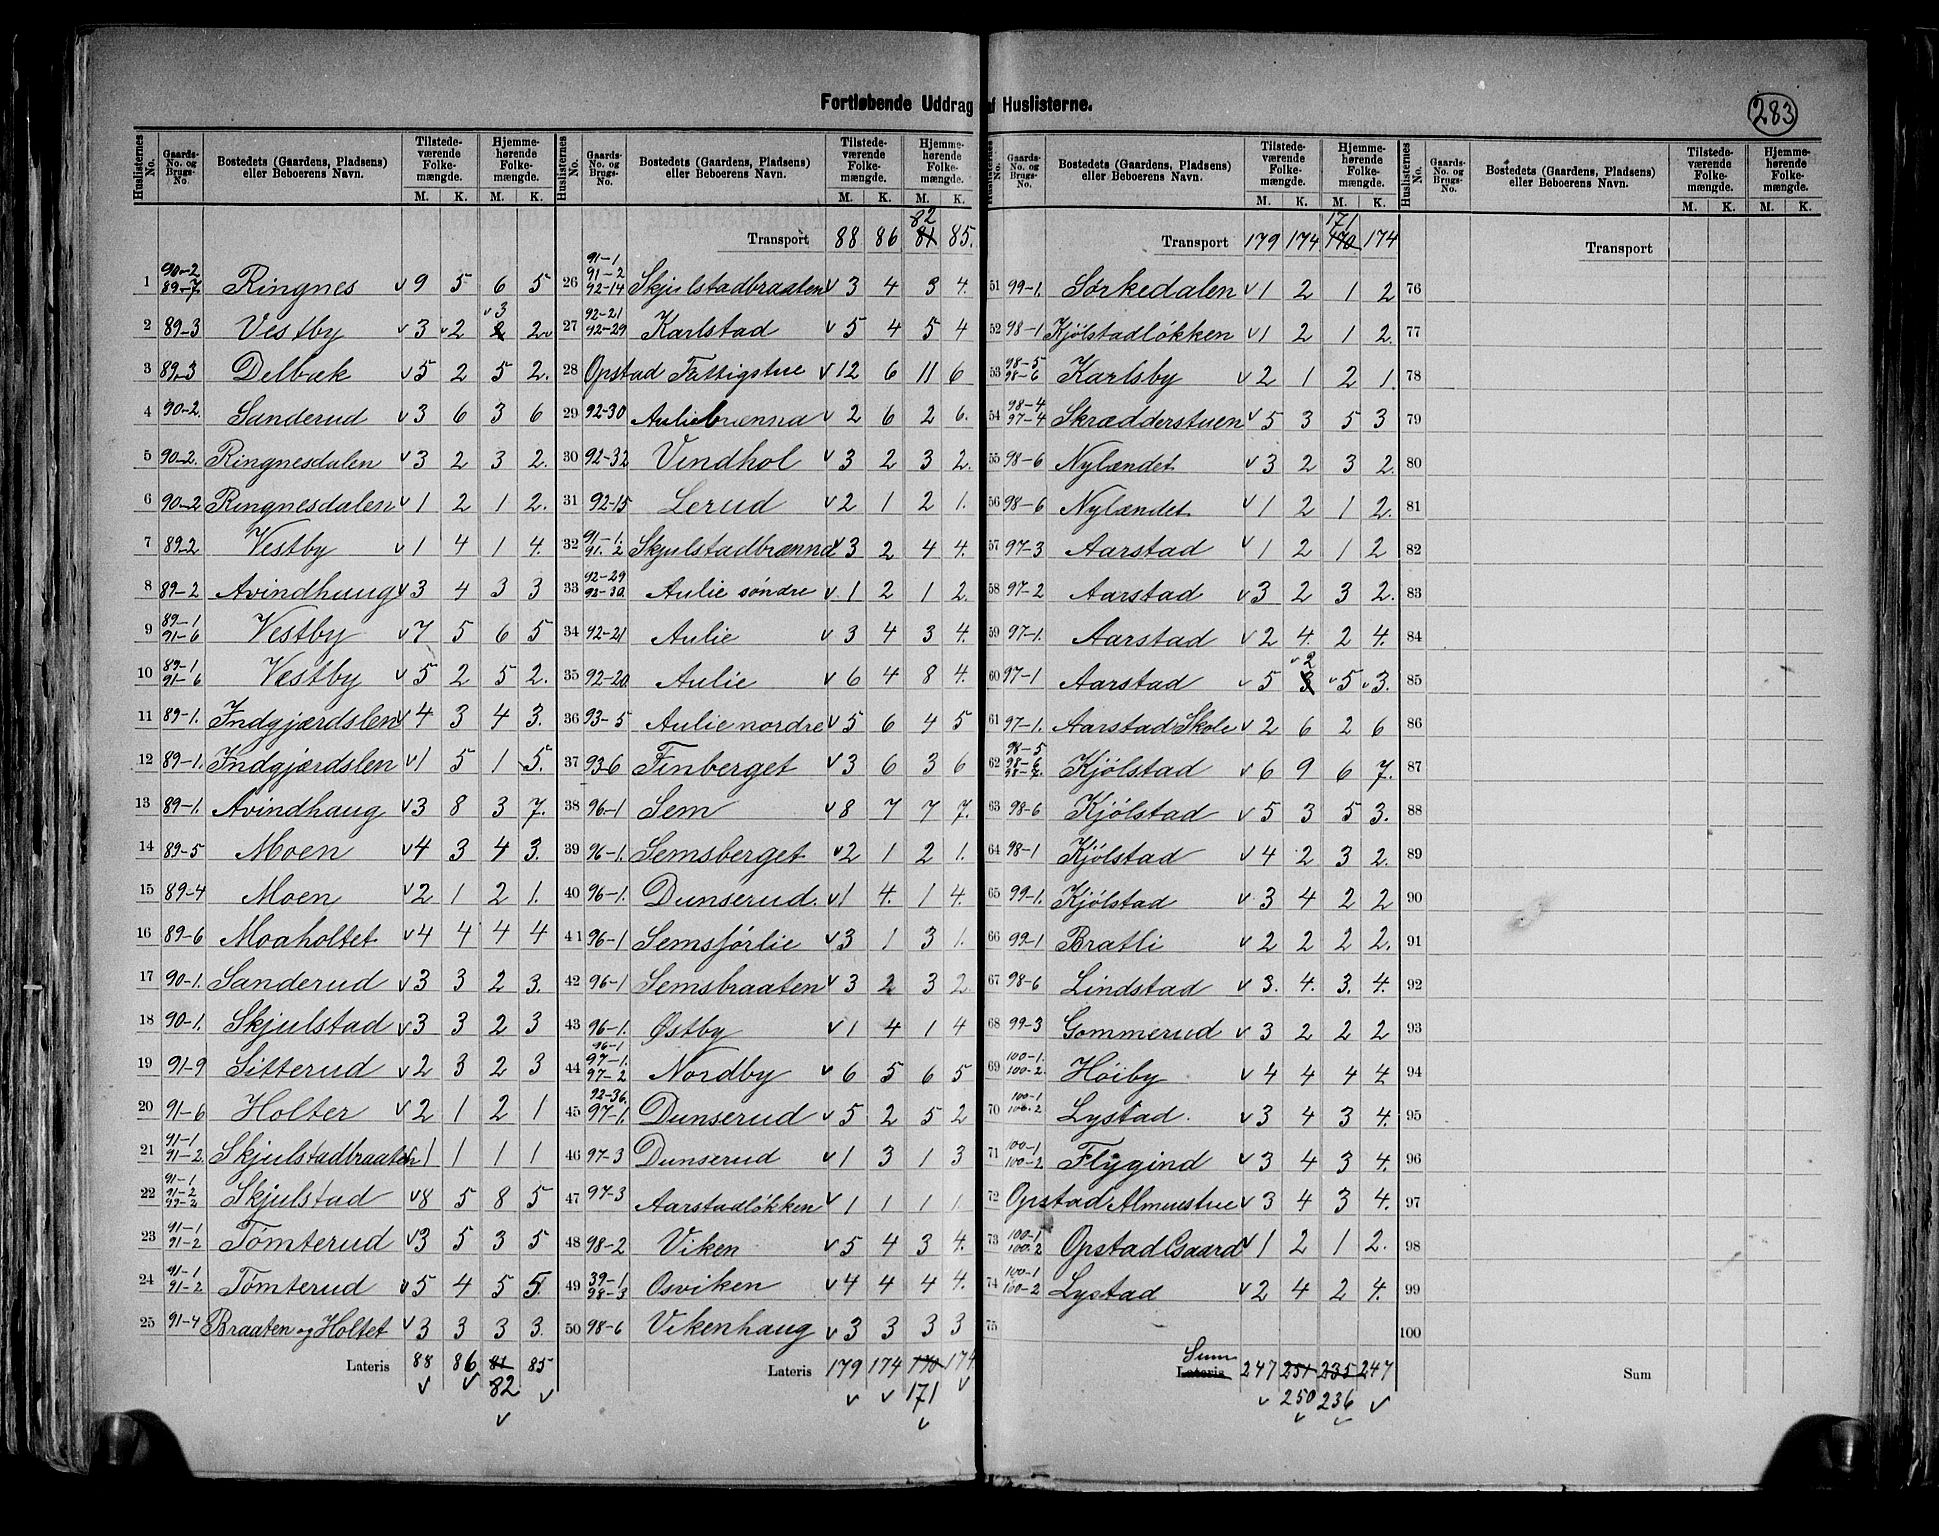 Fortløbende Uddrag af Huslisterne.
283
Huslisternes No. Gaards-No. og Brugs-No. Bostedets (Gaardens, Pladsens) eller Beboerens Navn. Tilstedeværende Folkemængde. M. K. Hjemmehørende Folkemængde. M. K.
1 90-2 89-7 Ringnes v 9 5 6 5
2 89-3 Vestby v 3 v 2 v 3 2 2 v
3 89-3 Delbæk v 5 2 5 2.
4 90-2. Sanderud v 3 6 3 6
5 90-2. Ringnesdalen v 3 2 3 2.
6 90-2 Ringnesdalen v 1 2 1 2.
7 89-2 Vestby v 1 4 1 4.
8 89-2 Avindhaug v 3 4 3 3
9 89-1 91-6 Vestby v 7 5 6 5
10 89-1 91-6 Vestby v 5 2 5 2.
11 89-1. Indgjærdslen v 4 3 4 3.
12 89-1. Indgjærdslen v 1 5 1 5.
13 89-1. Avindhaug v 3 8 3 7.
14 89-5 Moen v 4 3 4 3.
15 89-4 Moen v 2 1 2 1.
16 89-6 Moaholtet v 4 4 4 4
17 90-1. Sanderud v 3 3 2 3.
18 90-1. Skjulstad v 3 3 2 3
19 91-9 Sitterud v 2 3 2 3
20 91-6 Holter v 2 1 2 1
21 91-1 91-2. Skjulstadbraaten 1 1 1 1
22 91-1 91-2 92-2 Skjulstad v 8 5 8 5
23 91-1 91-2 Tømterud v 3 5 3 5
24 91-1 91-2 Tømterud v 5 4 5 5.
25 91-4 Braaten og Holtet v 3 3 3 3.
Lateris 88 86 81 85
v v 82 v
v
Huslisternes No. Gaards-No. og Brugs-No. Bostedets (Gaardens, Pladsens) eller Beboerens Navn. Tilstedeværende Folkemængde. M. K. Hjemmehørende Folkemængde. M. K.
82
Transport 88 86 81 85.
26 91-1 91-2 92-14 Skjulstadbraaten v 3 4 3 4.
27 92-21 92-29 Karlstad v 5 4 5 4
28 Opstad Fattigstue v 12 6 11 6
29 92-30 Auliebrænna v 2 6 2 6.
30 92-32 Vindhol v 3 2 3 2.
31 92-15 Lerud v 2 1 2 1.
32 91-1. 91. 2 Skjulstadbrænna v 3 2 4 4.
33 92-29 92-30. Aulie søndre v 1 2 1 2.
34 92-21 Aulie v 3 4 3 4.
35 92-20. Aulie v 6 4 8 4.
36 93-5 Aulie nordre v 5 6 4 5
37 93-6 Finberget v 3 6 3 6
38 96-1 Sem v 8 7 7 7.
39 96-1. Semsberget v 2 1 2 1.
40 96-1. Dunserud. v 1 4. 1 4.
41 96-1 Semsførlie v 3 1 3 1.
42 96-1 Semsbraaten v 3 2 3 2
43 96-1. Østby v 1 4 1 4
44 96-1 97-1. 97-2 Nordby v 6 5 6 5
45 92-36. 97-1. Dunserud v 5 2 5 2
46 97-3 Dunserud v 1 3 1 3
47 97-3 Aarstadløkken v 1 1 1 1.
48 98-2 Viken v 5 4 3 4.
49 39-1. 98-3 Osviken v 4 4 4 4.
50 98-6 Vikenhaug v 3 3 3 3
Lateris 179 174 170 174
v v 171 v
v
Huslisternes No. Gaards-No. og Brugs-No. Bostedets (Gaardens, Pladsens) eller Beboerens Navn. Tilstedeværende Folkemængde. M. K. Hjemmehørende Folkemængde. M. K.
171
Transport 179 174 170 174
51 99-1. Sørkedalen v 1 2 1 2
52 98-1 Kjølstadløkken v 1 2 1 2.
53 98-5 98-6 Karlsby v 2 1 2 1.
54 98-4 97-4 Skrædderstuen v 5 3 5 3
55 98-6 Nylændet v 3 2 3 2.
56 98-6 Nylændet v 1 2 1 2.
57 97-3 Aarstad v 1 2 1 2
58 97-2 Aarstad v 3 2 3 2.
59 97-1. Aarstad v 2 4. 2 4.
60 97-1 Aarstad v 5 v 2 3 v 5 v 3.
61 97-1. Aarstad Skole v 2 6 2 6
62 98-5 98-6 98-7. Kjølstad v 6 9 6 7.
63 98-6 Kjølstad v 5 3 5 3.
64 98-1 Kjølstad v 4 2 3 2.
65 99-1. Kjølstad v 3 4 2 2
66 99-1 Bratli v 2 2 2 2.
67 98-6 Lindstad v 3. 4. 3. 4.
68 99-3 Gommerud v 3 2 2 2
69 100-1. 100-2. Høiby v 4 4 4 4
70 100-1 100-2 Lystad. v 3 4 3 4.
71 100-1 100-2 Flygind v 3 4 3 4.
72 Opstad Almuestue v 3 4 3 4.
73 100-1 100-2 Opstad Gaard v 1 2 1 2.
74 100-1 100-2 Lystad v 2 4 2 4.
75
Sum
Lateris 247 251 235 247
v 250 236 v
v v
Huslisternes No. Gaards-No. og Brugs-No. Bostedets (Gaardens, Pladsens) eller Beboerens Navn. Tilstedeværende Folkemængde. M. K. Hjemmehørende Folkemængde. M. K.
Transport
76
77
78
79
80
81
82
83
84
85
86
87
88
89
90
91
92
93
94
95
96
97
98
99
100
Sum